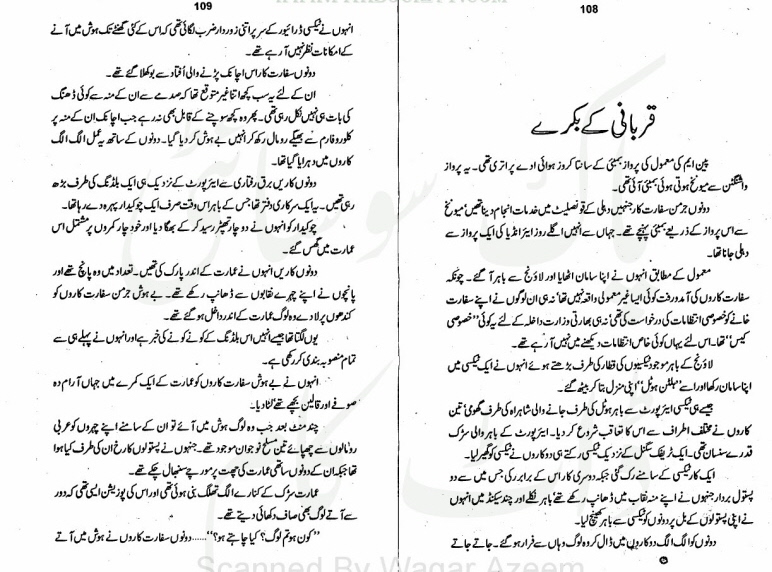 108
قربانی کے بکرے
پین ایم کی معمول کی پرواز بمبئی کے سانتا کروز ہوائی اڈے پر اتری تھی۔ یہ پرواز
واشنگٹن سے میونخ ہوتی ہوئی بمبئی آئی تھی۔
دونوں جرمن سفارت کار جنہیں دہلی کے قونصلیٹ میں خدمات انجام دینا تھیں، میونخ
سے اس پرواز کے ذریعے بمبئی پہنچے تھے۔ جہاں سے انہیں اگلے روز ایئر انڈیا کی ایک پرواز سے
دہلی جانا تھا۔
معمول کے مطابق انہوں نے اپنا سامان اٹھایا اور لاؤنج سے باہر آ گئے۔ چونکہ
سفارت کاروں کی آمد و رفت کوئی ایسا غیر معمولی واقعہ نہیں تھا نہ ہی ان لوگوں نے اپنے سفارت
خانے کو خصوصی انتظامات کی درخواست کی تھی نہ ہی بھارتی وزارت داخلہ کے لئے یہ کوئی ”خصوصی
کیس“ تھا۔ اس لئے یہاں کوئی خاص انتظامات دیکھنے میں نہیں آ رہے تھے۔
لاؤنج کے باہر موجود ٹیکسیوں کی قطار کی طرف بڑھتے ہوئے انہوں نے ایک ٹیکسی میں
اپنا سامان رکھا اور اسے ”ہلٹن ہوٹل“ اپنی منزل بتا کر بیٹھ گئے۔
جیسے ہی ٹیکسی ایئرپورٹ سے باہر ہوٹل کی طرف جانے والی شاہراہ کی طرف گھومی، تین
کاروں نے مختلف اطراف سے اس کا تعاقب شروع کر دیا۔ ایئرپورٹ کے باہر والی سڑک
قدرے سنسان تھی۔ ایک ٹریفک سگنل کے نزدیک ٹیکسی رکتے ہی دو کاروں نے ٹیکسی کو گھیر لیا۔
ایک کار ٹیکسی کے سامنے رک گئی جبکہ دوسری کار اس کے برابر رکی جس میں سے دو
پستول بردار جنہوں نے اپنے منہ نقاب میں ڈھانپ رکھے تھے باہر نکلے اور چند سیکنڈ میں انہوں
نے اپنی پستولوں کے بل پر دونوں کو ٹیکسی سے باہر کھینچ لیا۔
دونوں کو الگ الگ دو کاروں میں ڈال کر وہ لوگ وہاں سے فرار ہو گئے۔ جاتے جاتے
109
انہوں نے ٹیکسی ڈرائیور کے سر پر اتنی زوردار ضرب لگائی تھی کہ اس کے کئی گھنٹے تک ہوش میں آنے
کے امکانات نظر نہیں آ رہے تھے۔
دونوں سفارت کار اس اچانک پڑنے والی افتاد سے بوکھلا گئے تھے۔
ان کے لئے یہ سب کچھ اتنا غیر متوقع تھا کہ صدمے سے ان کے منہ سے کوئی ڈھنگ
کی بات ہی نہیں نکل رہی تھی۔ پھر وہ کچھ سوچنے کے قابل بھی نہ رہے جب اچانک ان کے منہ پر
کلوروفارم سے بھیگے رومال رکھ کر انہیں بے ہوش کر دیا گیا۔ دونوں کے ساتھ یہ عمل الگ الگ
کاروں میں دہرایا گیا تھا۔
دونوں کاریں برق رفتاری سے ایئرپورٹ کے نزدیک ہی ایک بلڈنگ کی طرف بڑھ
رہی تھیں۔ یہ ایک سرکاری دفتر تھا جس کے باہر اس وقت صرف ایک چوکیدار پہرہ دے رہا تھا۔
چوکیدار کو انہوں نے دو چار تھپڑ رسید کر کے بھگا دیا اور خود چار کمروں پر مشتمل اس
عمارت میں گھس گئے۔
دونوں کاریں انہوں نے عمارت کے اندر پارک کی تھیں۔ تعداد میں وہ پانچ تھے اور
پانچوں نے اپنے چہرے نقابوں سے ڈھانپ رکھے تھے۔ بے ہوش جرمن سفارت کاروں کو
کندھوں پر لادے وہ لوگ عمارت کے اندر داخل ہو گئے تھے۔
یوں لگتا تھا جیسے انہیں اس بلڈنگ کے کونے کونے کی خبر ہے اور انہوں نے پہلے ہی سے
تمام منصوبہ بندی کر رکھی ہے۔
انہوں نے بے ہوش سفارت کاروں کو عمارت کے ایک کمرے میں جہاں آرام دہ
صوفے اور قالین بچھے تھے لٹا دیا۔
چند منٹ بعد جب وہ لوگ ہوش میں آئے تو ان کے سامنے اپنے چہروں کو عربی
رومالوں سے چھپائے تین مسلح نوجوان موجود تھے۔ جنہوں نے پستولوں کا رخ ان کی طرف کیا ہوا
تھا جبکہ ان کے دونوں ساتھی عمارت کی چھت پر مورچے سنبھال چکے تھے۔
عمارت سڑک کے کنارے الگ تھلگ بنی ہوئی تھی اور اس کی پوزیشن ایسی تھی کہ دور
سے آتے لوگ بھی صاف دکھائی دیتے تھے۔
”کون ہو تم لوگ؟ کیا چاہتے ہو؟“...... دونوں سفارت کاروں نے ہوش میں آتے
Scanned By Waqar Azeem